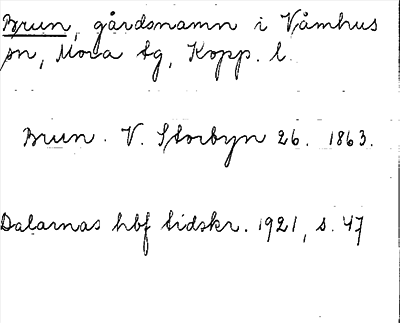 Brun, gårdsnamn i Våmhus
sn, Mora tg, Kopp. l.
Brun. V. Storbyn 26. 1863.
Dalarnas hbf tidskr. 1921, s. 47